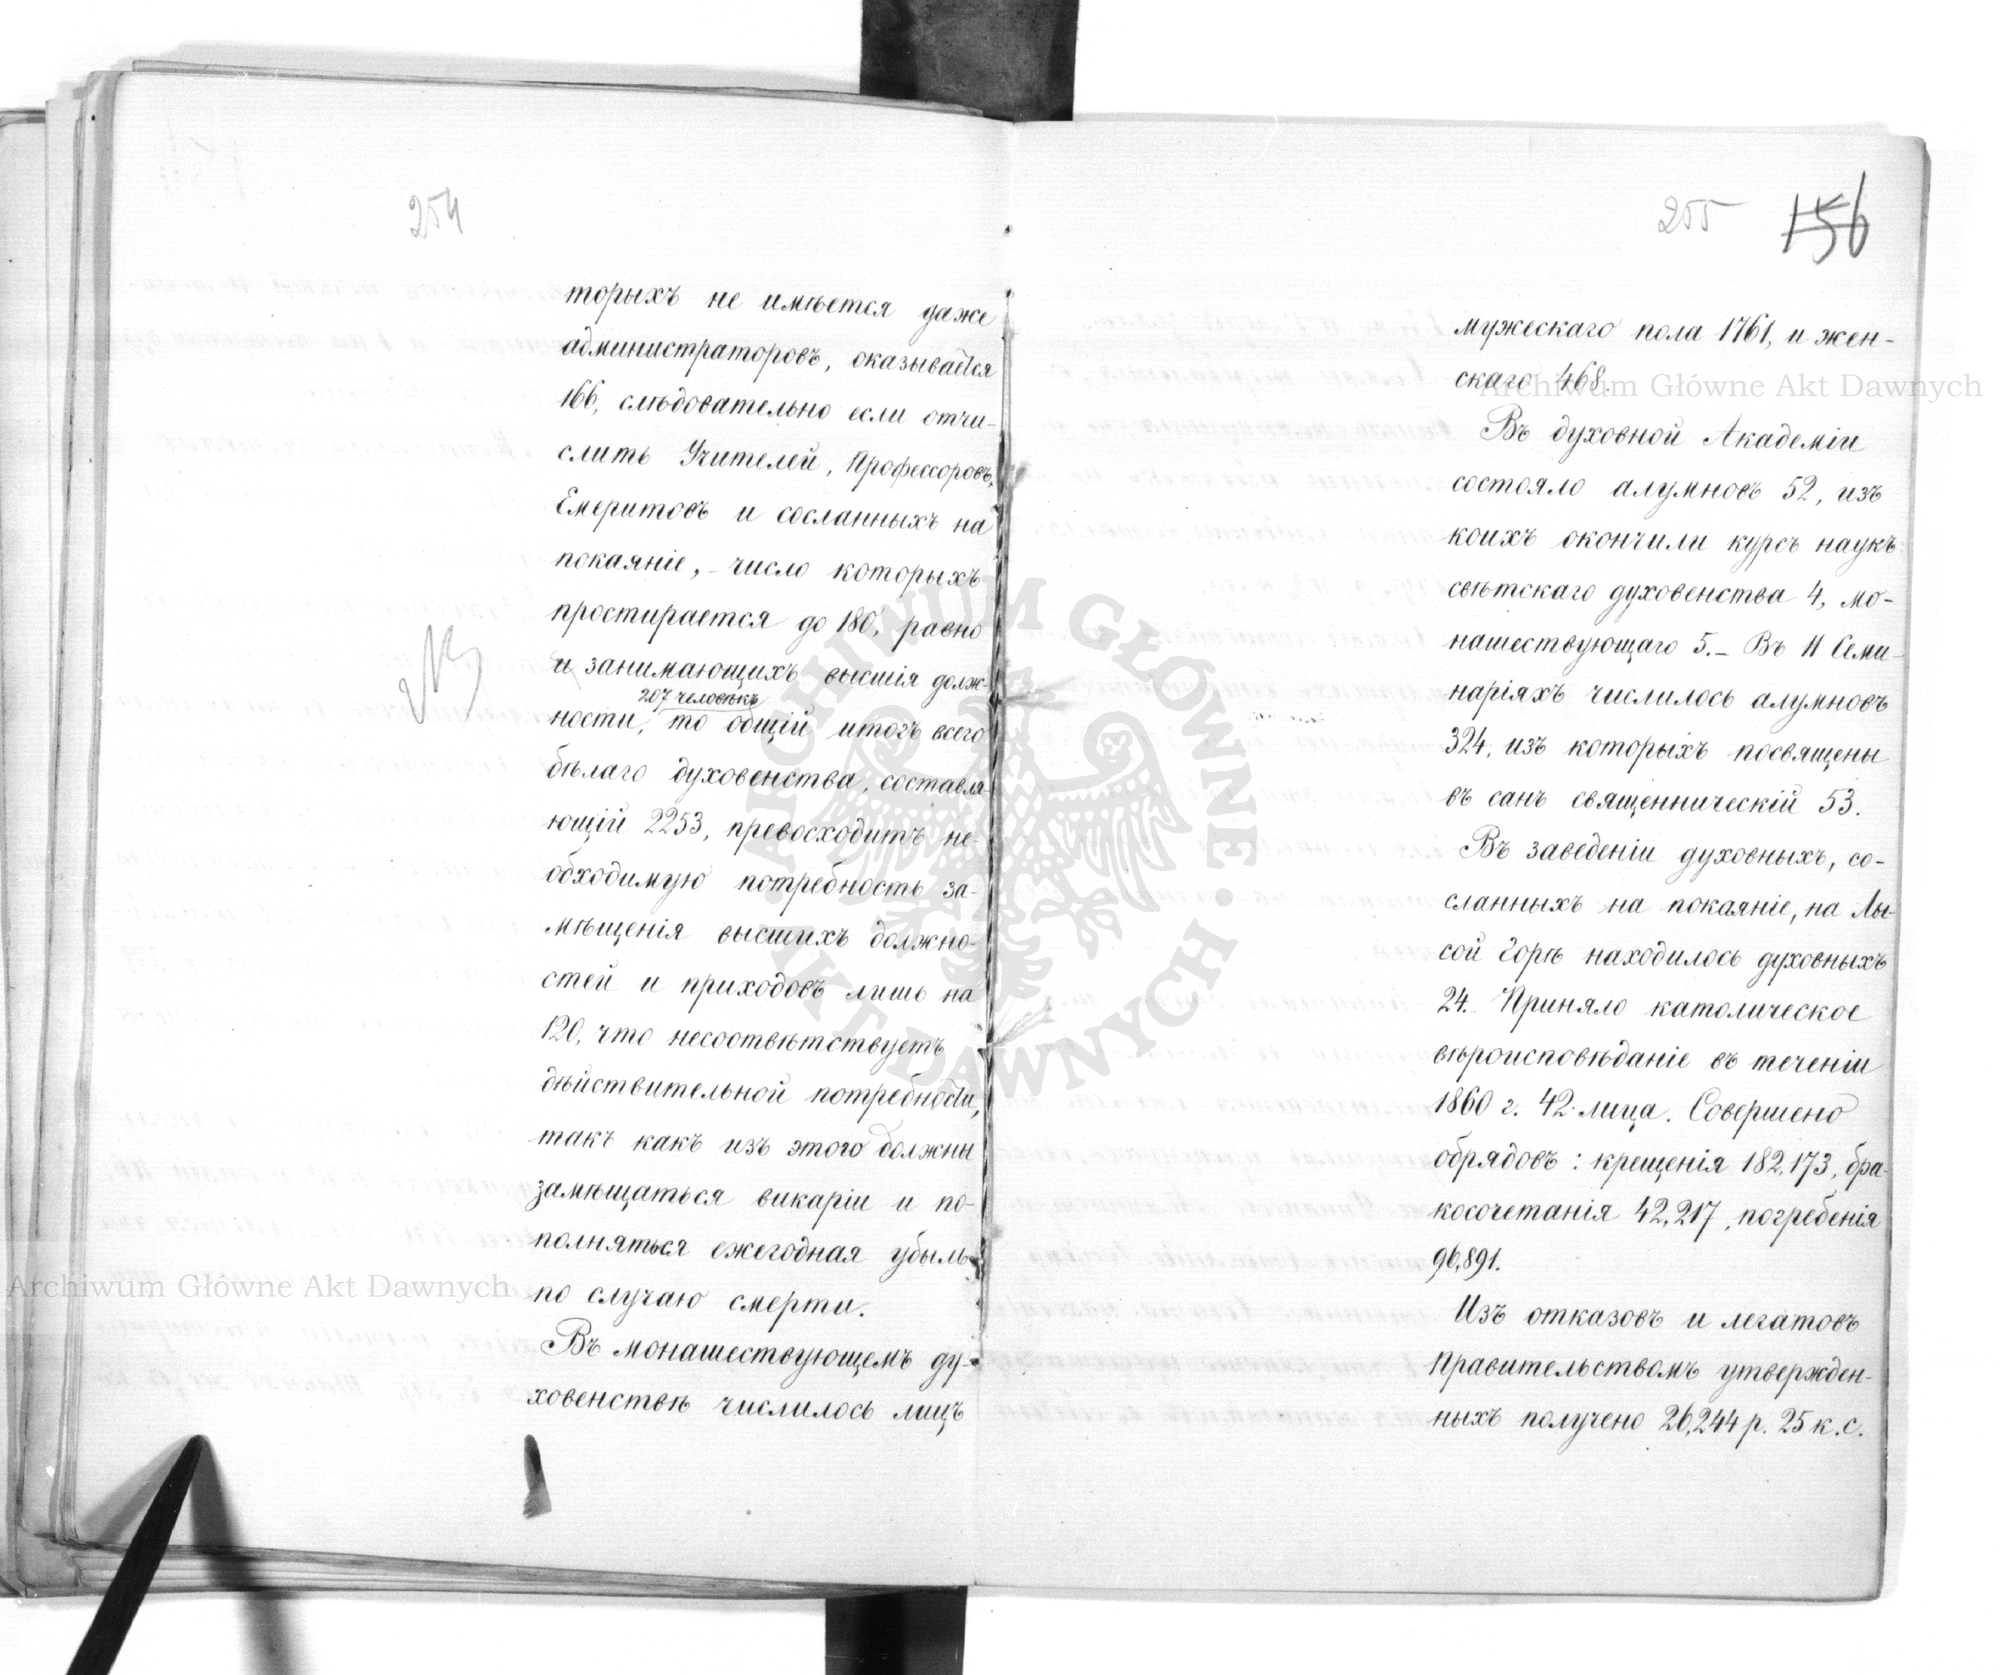 254
торыхъ не имѣется даже
администраторовъ, оказывается
166, слѣдовательно если отчи-
слить Учителей, Профессоровъ,
Емеритовъ и сосланныхъ на
покаяніе, - число которыхъ
простирается до 180, равно
и занимающихъ высшія долж-
207 человѣкъ
ности, то общій итогъ всего
бѣлаго духовенства, составля-
ющій 2253, превосходитъ не-
обходимую потребность за-
мѣщенія высшихъ должно-
стей и приходовъ лишь на
120, что несоотвѣтствуетъ
дѣйствительной потребности,
такъ какъ изъ этого должны
замѣщаться викаріи и по-
полняться ежегодная убыль
по случаю смерти.
Въ монашествующемъ ду-
ховенствѣ числилось лицъ
255 156
мужескаго пола 1761, и жен-
скаго 468.
Въ духовной Академіи
состояло алумновъ 52, изъ
коихъ окончили курсъ наукъ
свѣтскаго духовенства 4, мо-
нашествующаго 5. – Въ 11 Семи-
наріяхъ числилось алумновъ
324, изъ которыхъ посвящены
въ санъ священническій 53.
Въ заведеніи духовныхъ, со-
сланныхъ на покаяніе, на Лы-
сой Горѣ находилось духовныхъ
24. - Приняло католическое
вѣроисповѣданіе въ теченіи
1860 г. 42 лица. Совершено
обрядовъ: крещенія 182,173, бра-
косочетанія 42,217, погребенія
96,891.
Изъ отказовъ и легатовъ
Правительствомъ утвержден-
ныхъ получено 26,244 р. 25 к. с.
Archiwum Główne Akt Dawnych
Archiwum Główne Akt Dawnych
ARCHIWUM GŁÓWNE AKT DAWNYCH